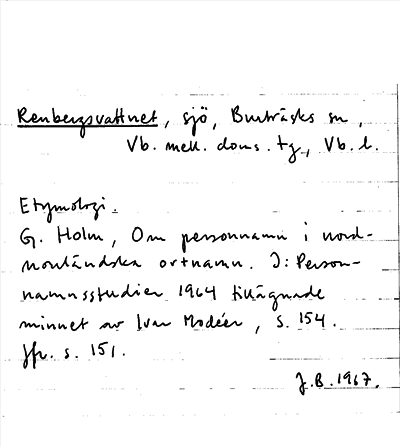 Renbergsvattnet, sjö, Burträsks sn,
Vb. mell. doms. tg, Vb. l.
Etymologi.
G. Holm, Om personnamn i nord-
norrländska ortnamn. I: Person-
namnsstudier 1964 tillägnade
minnet av Ivar Modéer, s. 154.
Jfr. s. 151.
J.B. 1967.